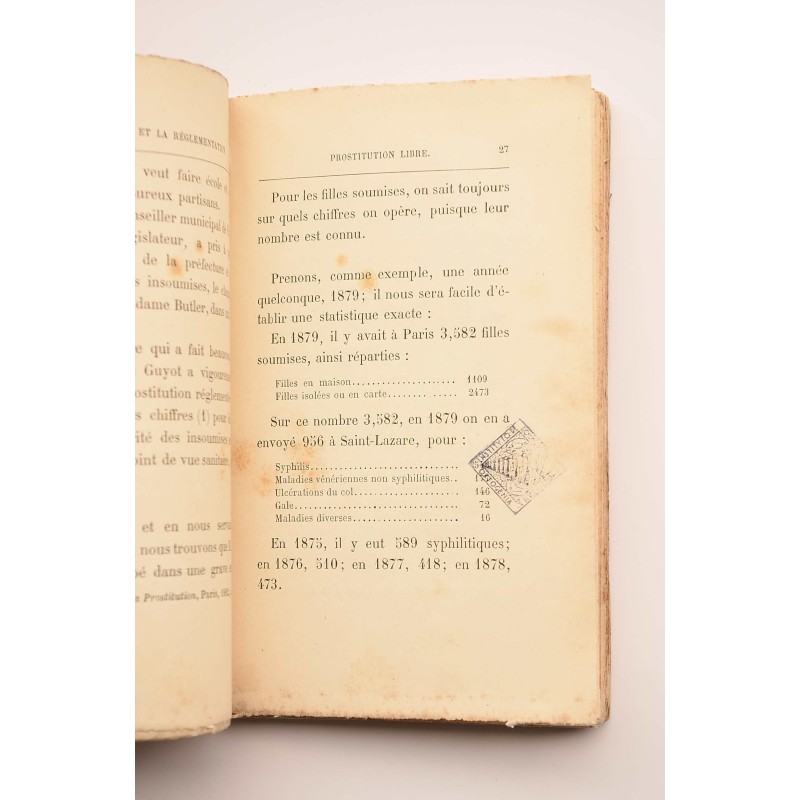 ET LA RÉGLEMENTATION
veut faire école et
ureux partisans.
nseiller municipal de
gislateur, a pris à
de la préfecture
s insoumises, le
dame Butler, dans
e qui a fait
Guyot a
rostitution
s chiffres (1) pour
ité des insoumises
oint de vue sanitaire
et en nous
nous trouvons que
bé dans une grave
a Prostitution, Paris,
PROSTITUTION LIBRE. 27
Pour les filles soumises, on sait toujours
sur quels chiffres on opère, puisque leur
nombre est connu.
Prenons, comme exemple, une année
quelconque, 1879; il nous sera facile d'é-
tablir une statistique exacte :
En 1879, il y avait à Paris 3,582 filles
soumises, ainsi réparties :
Filles en maison.................... 1109
Filles isolées ou en carte........ ..... 2473
Sur ce nombre 3,582, en 1879 on en a
envoyé 956 à Saint-Lazare, pour :
Syphilis.............................
Maladies vénériennes non syphilitiques..
Ulcérations du col.................... 146
Gale............................. 72
Maladies diverses..................... 16
En 1875, il y eut 589 syphilitiques;
en 1876, 510; en 1877, 418; en 1878,
473.